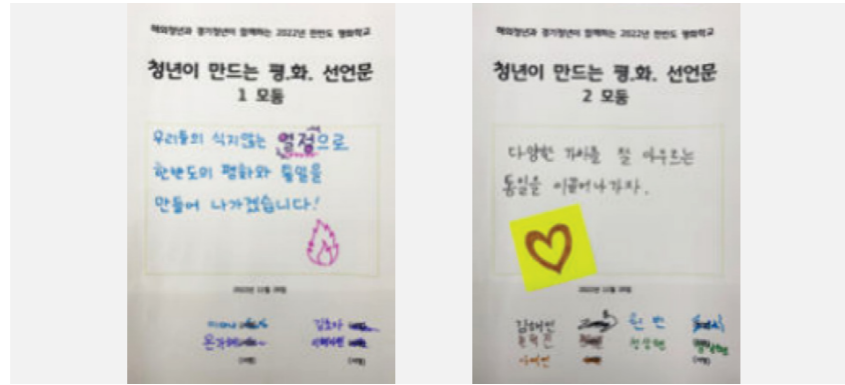 해외청년과 경기청년이 함께하는 2022년 한반도 평화학교
청년이 만드는 평.화. 선언문
1 모둠
우리들의 식지않는 열정으로
한반도의 평화와 통일을
만들어 나가겠습니다!
2022년 11월
(서명)
해외청년과 경기청년이 함께하는 2022년 한반도 평화학교
청년이 만드는 평.화. 선언문
2 모둠
다양한 가치를 잘 아우르는
통일을 이끌어나가자.
2022년 11월
(서명)